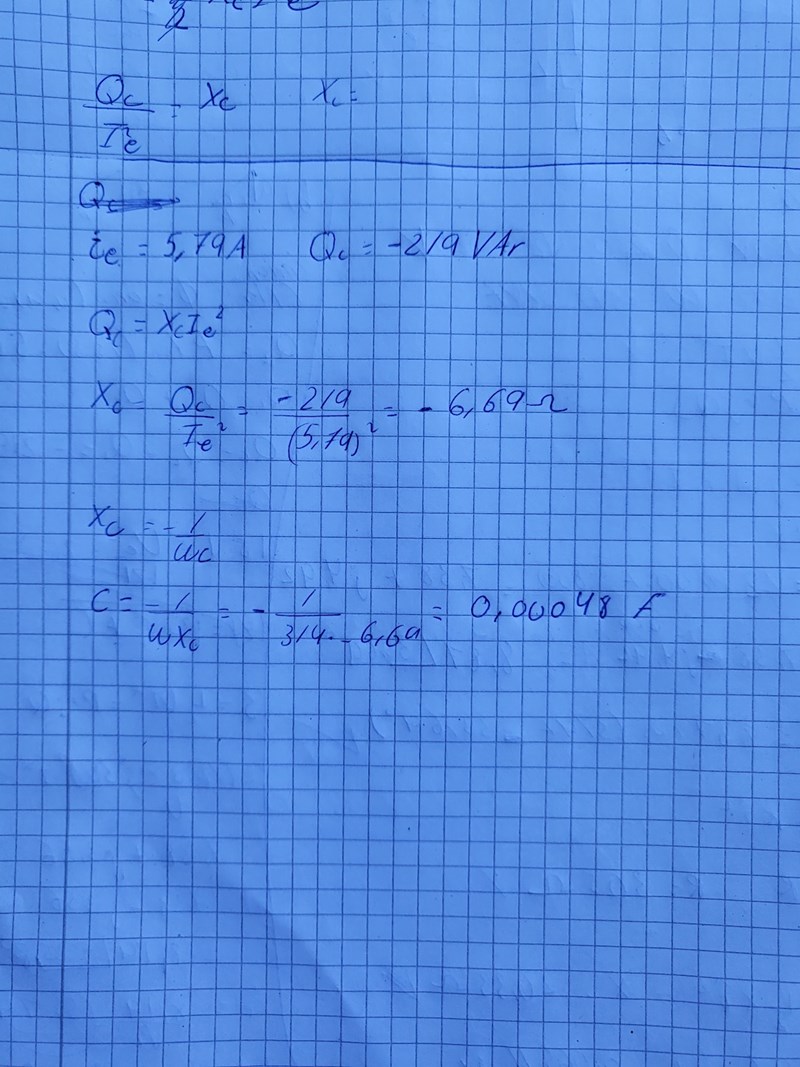 Qc / Ie² = Xc    Xc =
Qc
Ie = 5,79A    Qc = -219 VAr
Qc = XcIe²
Xc = Qc / Ie² = -219 / (5,79)² = - 6,69 Ω
Xc = - 1 / ωC
C = - 1 / ωXc = - 1 / 314 · -6,69 = 0,00048 F